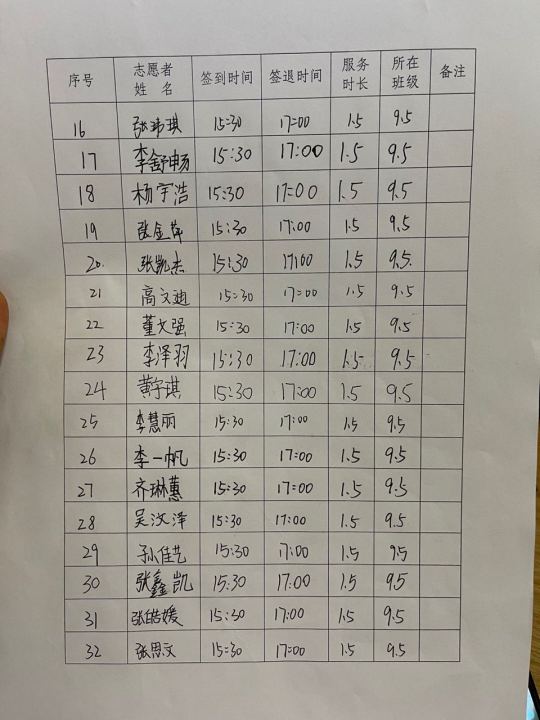 序号 志愿者姓名 签到时间 签退时间 服务时长 所在班级 备注
16 张玮琪 15:30 17:00 1.5 9.5
17 李舒畅 15:30 17:00 1.5 9.5
18 杨宇浩 15:30 17:00 1.5 9.5
19 张金萍 15:30 17:00 1.5 9.5
20. 张凯杰 15:30 17:00 1.5 9.5.
21 高文迪 15:30 17:00 1.5 9.5
22 董文强 15:30 17:00 1.5 9.5
23 李泽羽 15:30 17:00 1.5 9.5
24 黄宇琪 15:30 17:00 1.5 9.5
25 李慧丽 15:30 17:00 1.5 9.5
26 李一帆 15:30 17:00 1.5 9.5
27 齐琳蕙 15:30 17:00 1.5 9.5
28 吴汝泽 15:30 17:00 1.5 9.5
29 孙佳艺 15:30 17:00 1.5 9.5
30 张鑫凯 15:30 17:00 1.5 9.5
31 张皓媛 15:30 17:00 1.5 9.5
32 张思文 15:30 17:00 1.5 9.5